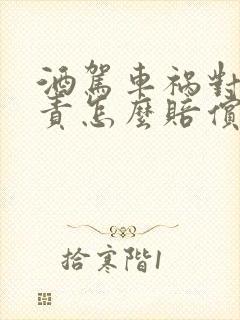 酒駕車禍對
責怎麼賠償
拾寒階1